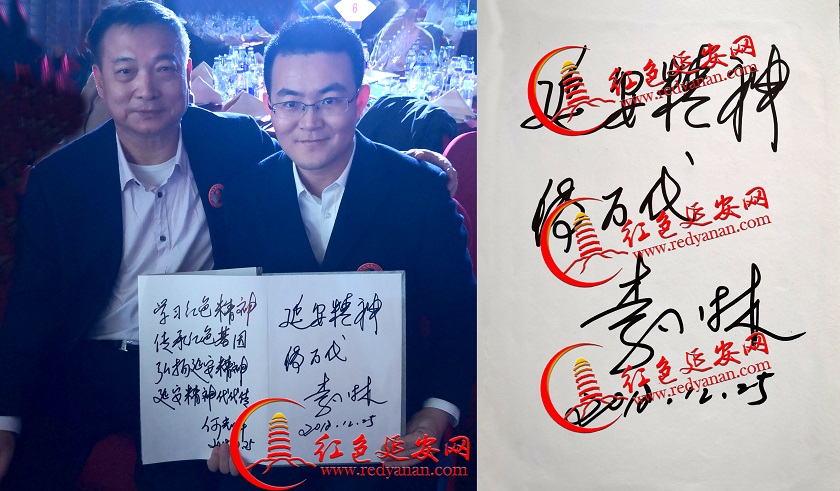 学习红色精神
传承红色基因
弘扬延安精神
延安精神代代传
延安精神
傳万代
2018.12.25
红色延安网
www.redyanan.com
延安精神
红色延安网
www.redyanan.com
傳万代
红色延安网
www.redyanan.com
红色延安网
www.redyanan.com
2018.12.25